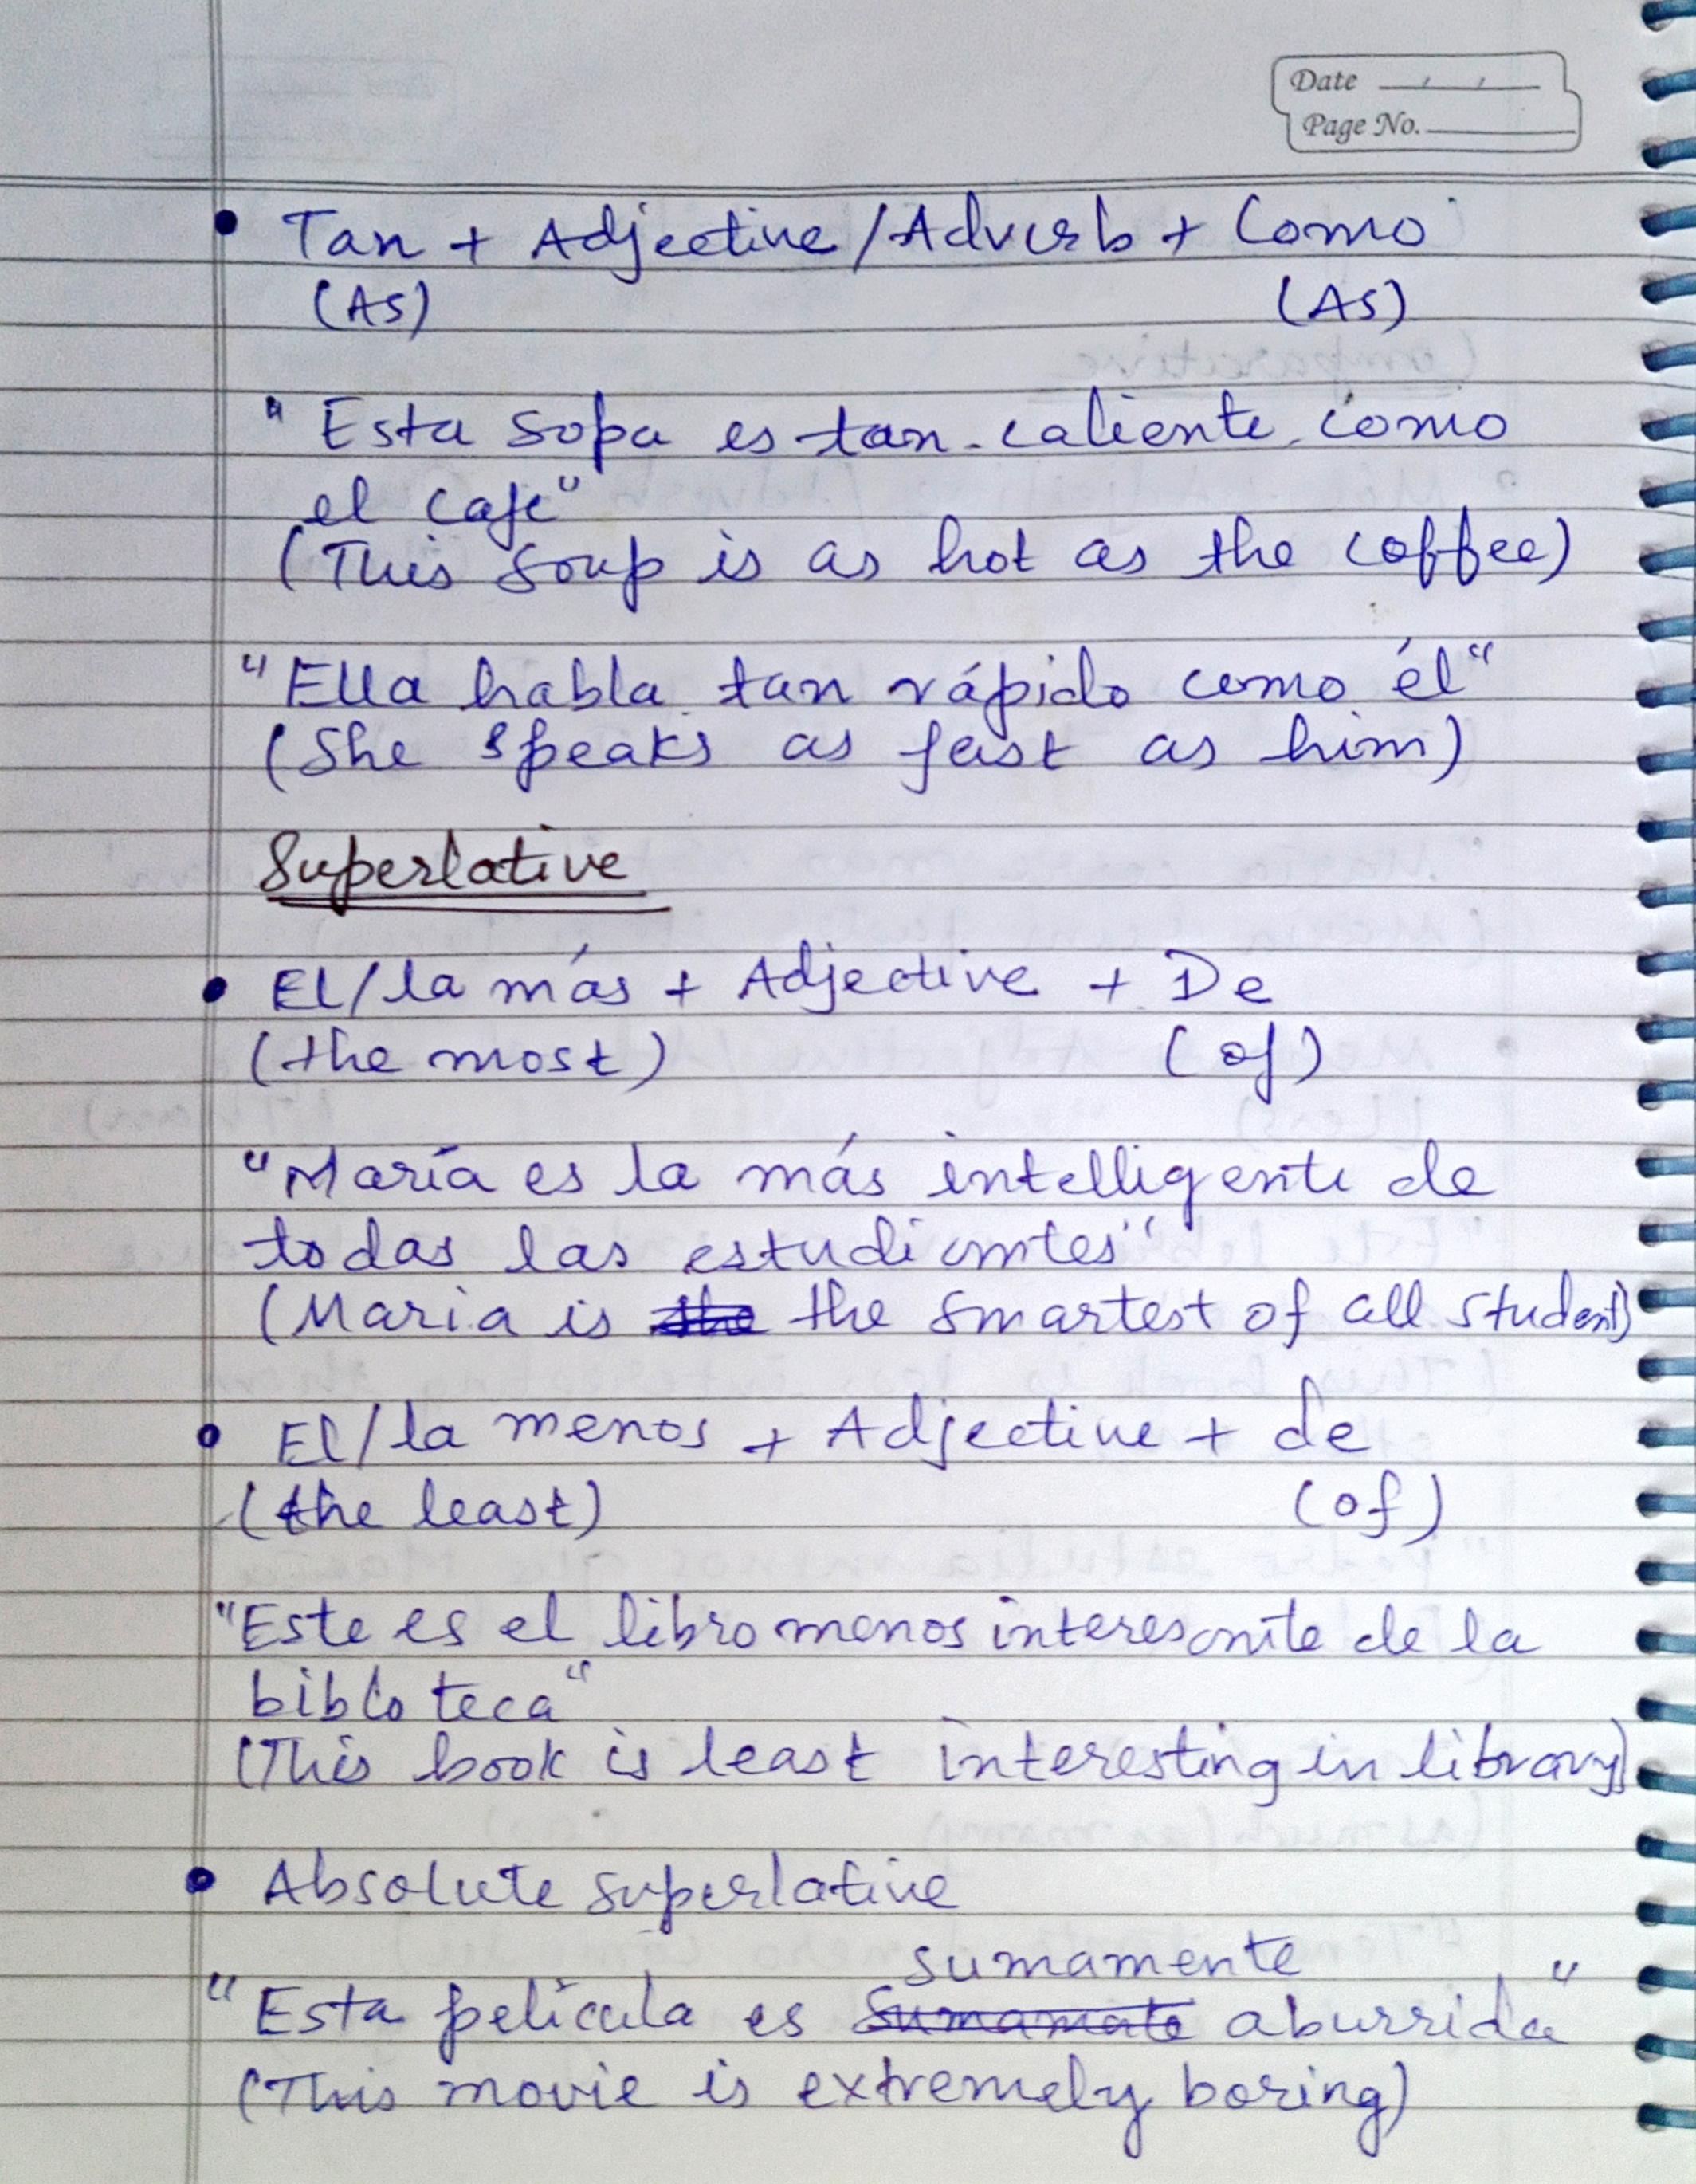 Date / /
Page No.
• Tan + Adjective/Adverb + Como
(As) (As)
"Esta sopa es tan caliente como
el cafe"
(This soup is as hot as the coffee)
"Ella habla tan rápido como él"
(She speaks as fast as him)
Superlative
• El/la más + Adjective + De
(the most) (of)
"María es la más intelligente de
todas las estudiantes"
(Maria is the the smartest of all student)
• El/la menos + Adjective + de
(the least) (of)
"Este es el libro menos interesante de la
bibloteca"
(This book is least interesting in library)
• Absolute superlative
sumamente
"Esta película es Sumamate aburrida"
(This movie is extremely boring)